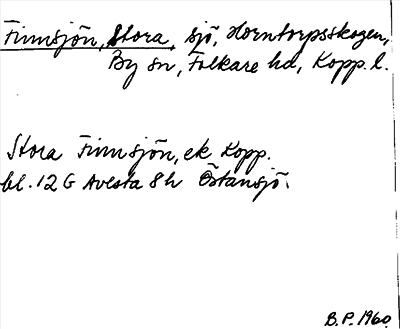 Finnsjön, Stora, sjö, Horntorpsskogen,
By sn, Folkare hd, Kopp. l.
Stora Finnsjön, ek Kopp.
bl. 12 G Avesta 8 h Östansjö.
B.P. 1960.